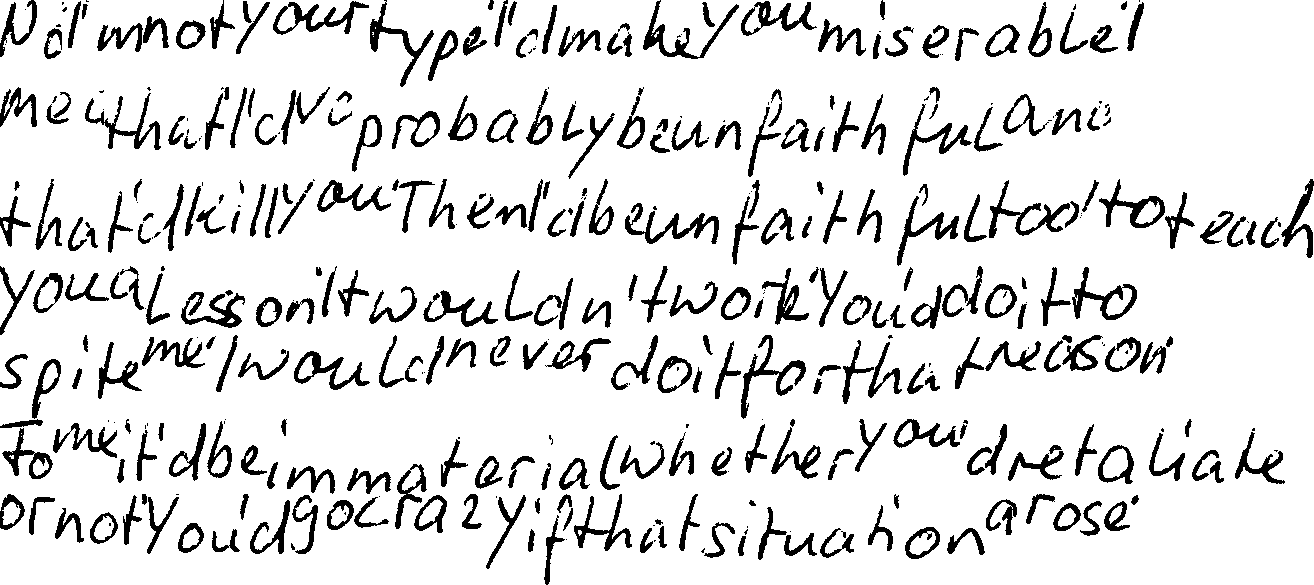 No I'm not your type I'd make you miserable I
mean that I'd've probably be unfaithful and
that'd kill you Then I'd be unfaithful too to teach
you a lesson It wouldn't work You'd do it to
spite me I would never do it for that reason
To me it'd be immaterial whether you'd retaliate
or not You'd go crazy if that situation arose